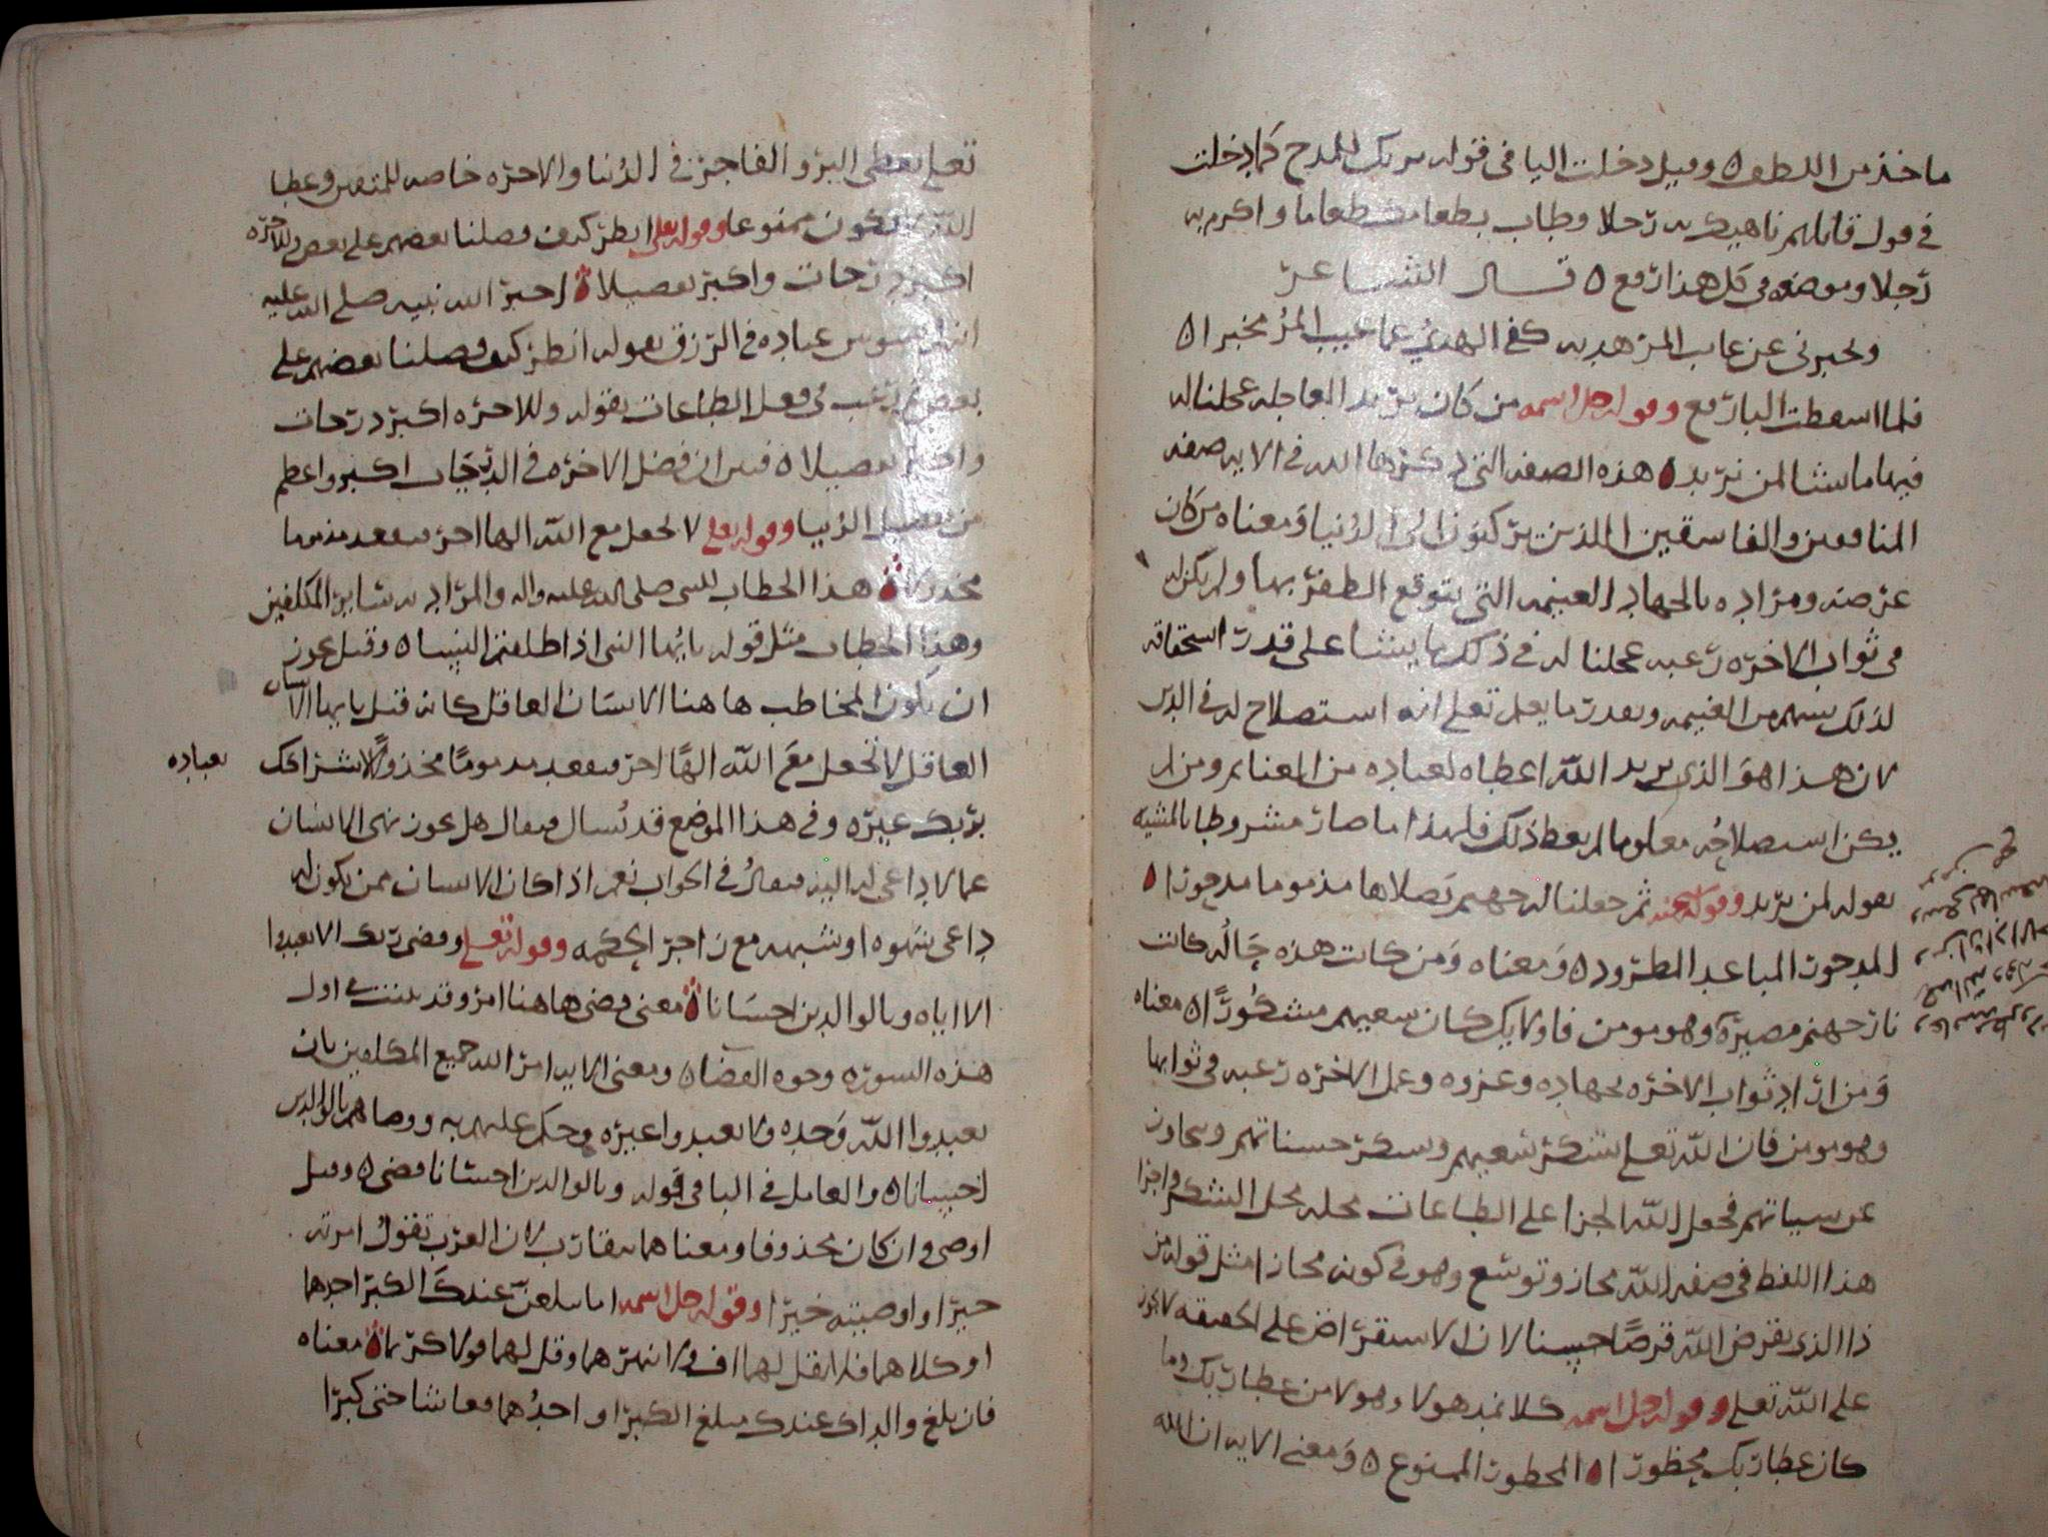 ماخذ من اللطف ٥ وقيل دخلت اليا فى قوله بربك للمدح كما دخلت
فى قول قايلهم ناهيك به رجلا وطاب بطعامك طعاما واكرم به
رجلا وموضعه فى كل هذا رفع ٥ قال الشاعر
ويخبرنى عن غايب المر هديه كفى الهدى عما غيب المر مخبرا ٥
فلما اسقطت البا رفع وقوله جل اسمه من كان يريد العاجله عجلنا له
فيها ما نشا لمن نريد ٥ هذه الصفه التى ذكرها الله فى الايه صفه
المنافقين والفاسقين الذين يركنون الى الدنيا ومعناه من كان
غرضه ومراده بالجهاد الغنيمه التى يتوقع الظفر بها ولم يكن له
فى ثواب الاخره رغبه عجلنا له فى ذلك ما يشا على قدر استحقاقه
لذلك بسهم من الغنيمه وبقدر ما يعلم تعلى انه استصلاح له فى الدين
لان هذا هو الذى يريد الله اعطاه لعباده من المغنايم ومن لم
يكن استصلاحه معلوما لم يعط ذلك فلهذا ما صار مشروطا بالمشيه
بقوله لمن نريد وقوله ثم جعلنا له جهنم يصلاها مذموما مدحورا ٥
المدحور المباعد المطرود ٥ ومعناه ومن كانت هذه حاله كانت
نار جهنم مصيره وهو مومن فاولايك كان سعيهم مشكورا ٥ معناه
ومن اراد ثواب الاخره بجهاده وغزوه وعمل الاخره رغبه فى ثوابها
وهو مومن فان الله تعلى يشكر سعيهم ويشكر حسناتهم ويتجاوز
عن سياتهم فجعل الله الجزا على الطاعات محله محل الشكر واجرا
هذا اللفظ فى صفه الله مجاز وتوسع وهو فى كونه مجازا مثل قوله من
ذا الذى يقرض الله قرضا حسنا لان الاستقراض على الحقيقه لا يجوز
على الله تعلى وقوله جل اسمه كلا نمد هولا وهولا من عطا ربك وما
كان عطا ربك محظورا ٥ المحظور الممنوع ٥ ومعنى الايه ان الله
تعلى يعطى البر والفاجر فى الدنيا والاخره خاصه للمتقين وعطا
الله لا يكون ممنوعا وقوله تعلى انظر كيف فضلنا بعضهم على بعض وللاخره
اكبر درجات واكبر تفضيلا ٥ اخبر الله نبيه صلى الله عليه
عباده فى الرزق بقوله انظر كيف فضلنا بعضهم على
بعض ثم رغب فى فعل الطاعات بقوله وللاخره اكبر درجات
واكبر تفضيلا ٥ فبين ان فضل الاخره فى الدرجات اكبر واعظم
من تفضيل الدنيا وقوله تعلى لا تجعل مع الله الها اخر فتقعد مذموما
مخذولا ٥ هذا الخطاب للنبى صلى الله عليه واله والمراد به ساير المكلفين
وهذا الخطاب مثل قوله يايها النبى اذا طلقتم النسا ٥ وقيل يجوز
ان يكون المخاطب هاهنا الانسان العاقل كانه قيل يايها الانسان
العاقل لا تجعل مع الله الها اخر فتقعد مذموما مخذولا لاشراكك
بعباده
بربك غيره وفى هذا الموضع قد يُسال فيقال هل يجوز نهى الانسان
عما لا داعى له اليه فيقال فى الجواب نعم اذا كان الانسان ممن يكون له
داعى شهوه او شبهه مع زاجر الحكمه وقوله تعلى وقضى ربك الا تعبدوا
الا اياه وبالوالدين احسانا ٥ معنى قضى هاهنا امر وقد بينت فى اول
هذه السوره وجوه القضا ٥ ومعنى الايه امر الله جميع المكلفين بان
يعبدوا الله وحده ولا يعبدوا غيره وحكم عليهم به ووصاهم بالوالدين
احسانا ٥ والعامل فى البا فى قوله وبالوالدين احسانا قضى ٥ وقيل
اوصى وان كان محذوفا ومعناهما يتقارب لان العرب تقول امرته
خيرا واوصيته خيرا وقوله جل اسمه اما يبلغن عندك الكبر احدهما
او كلاهما فلا تقل لهما اف ولا تنهرهما وقل لهما قولا كريما ٥ معناه
فان بلغ والداك عندك مبلغ الكبر او احدهما وعاشا حتى كبرا